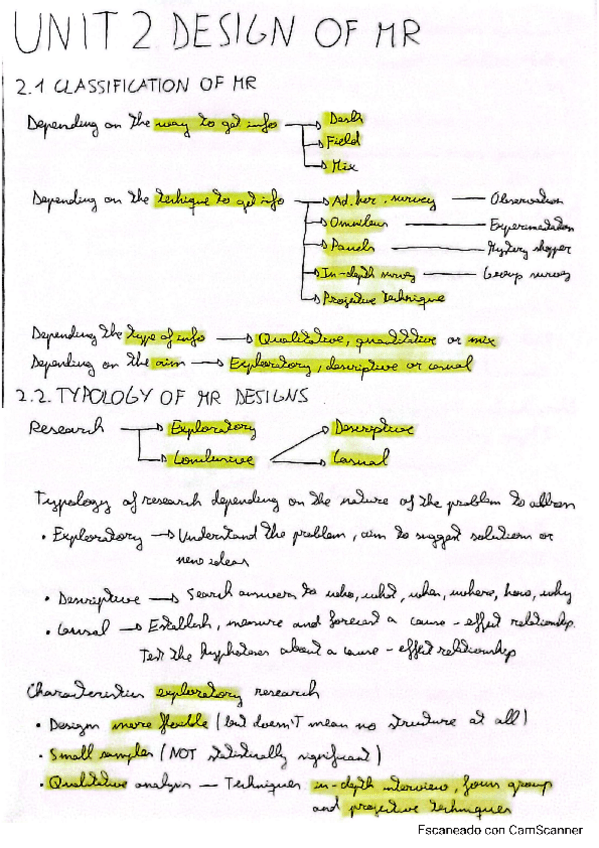 UNIT 2 DESIGN OF MR
2.1 CLASSIFICATION OF MR
Depending on the way to get info → Desk
→ Field
→ Mix
Depending on the tehique to get info → Ad. hoc. survey — Observation
→ Omnibus — Experimentation
→ Panels — Mystery shopper
→ In-depth survey — Group survey
→ Projective technique
Depending the type of info → Qualitative, quantitative or mix
Depending on the aim → Exploratory, descriptive or causal
2.2. TYPOLOGY OF MR DESIGNS
Research → Exploratory → Descriptive
→ Conclusive → Casual
Typology of research depending on the nature of the problem to adress
• Exploratory → Understand the problem, aim to suggest solutions or
new ideas
• Descriptive → Search answers to who, what, when, where, how, why
• Causal → Establish, measure and forecast a cause - effect relationship.
Test the hyphoteses about a cause - effect relationship
Characteristics exploratory research
• Design more flexible (but doesn't mean no structure at all)
• Small samples (NOT statistically significant)
• Qualitative analysis — Techniques in-depth interview, focus group
and projective techniques
Escaneado con CamScanner